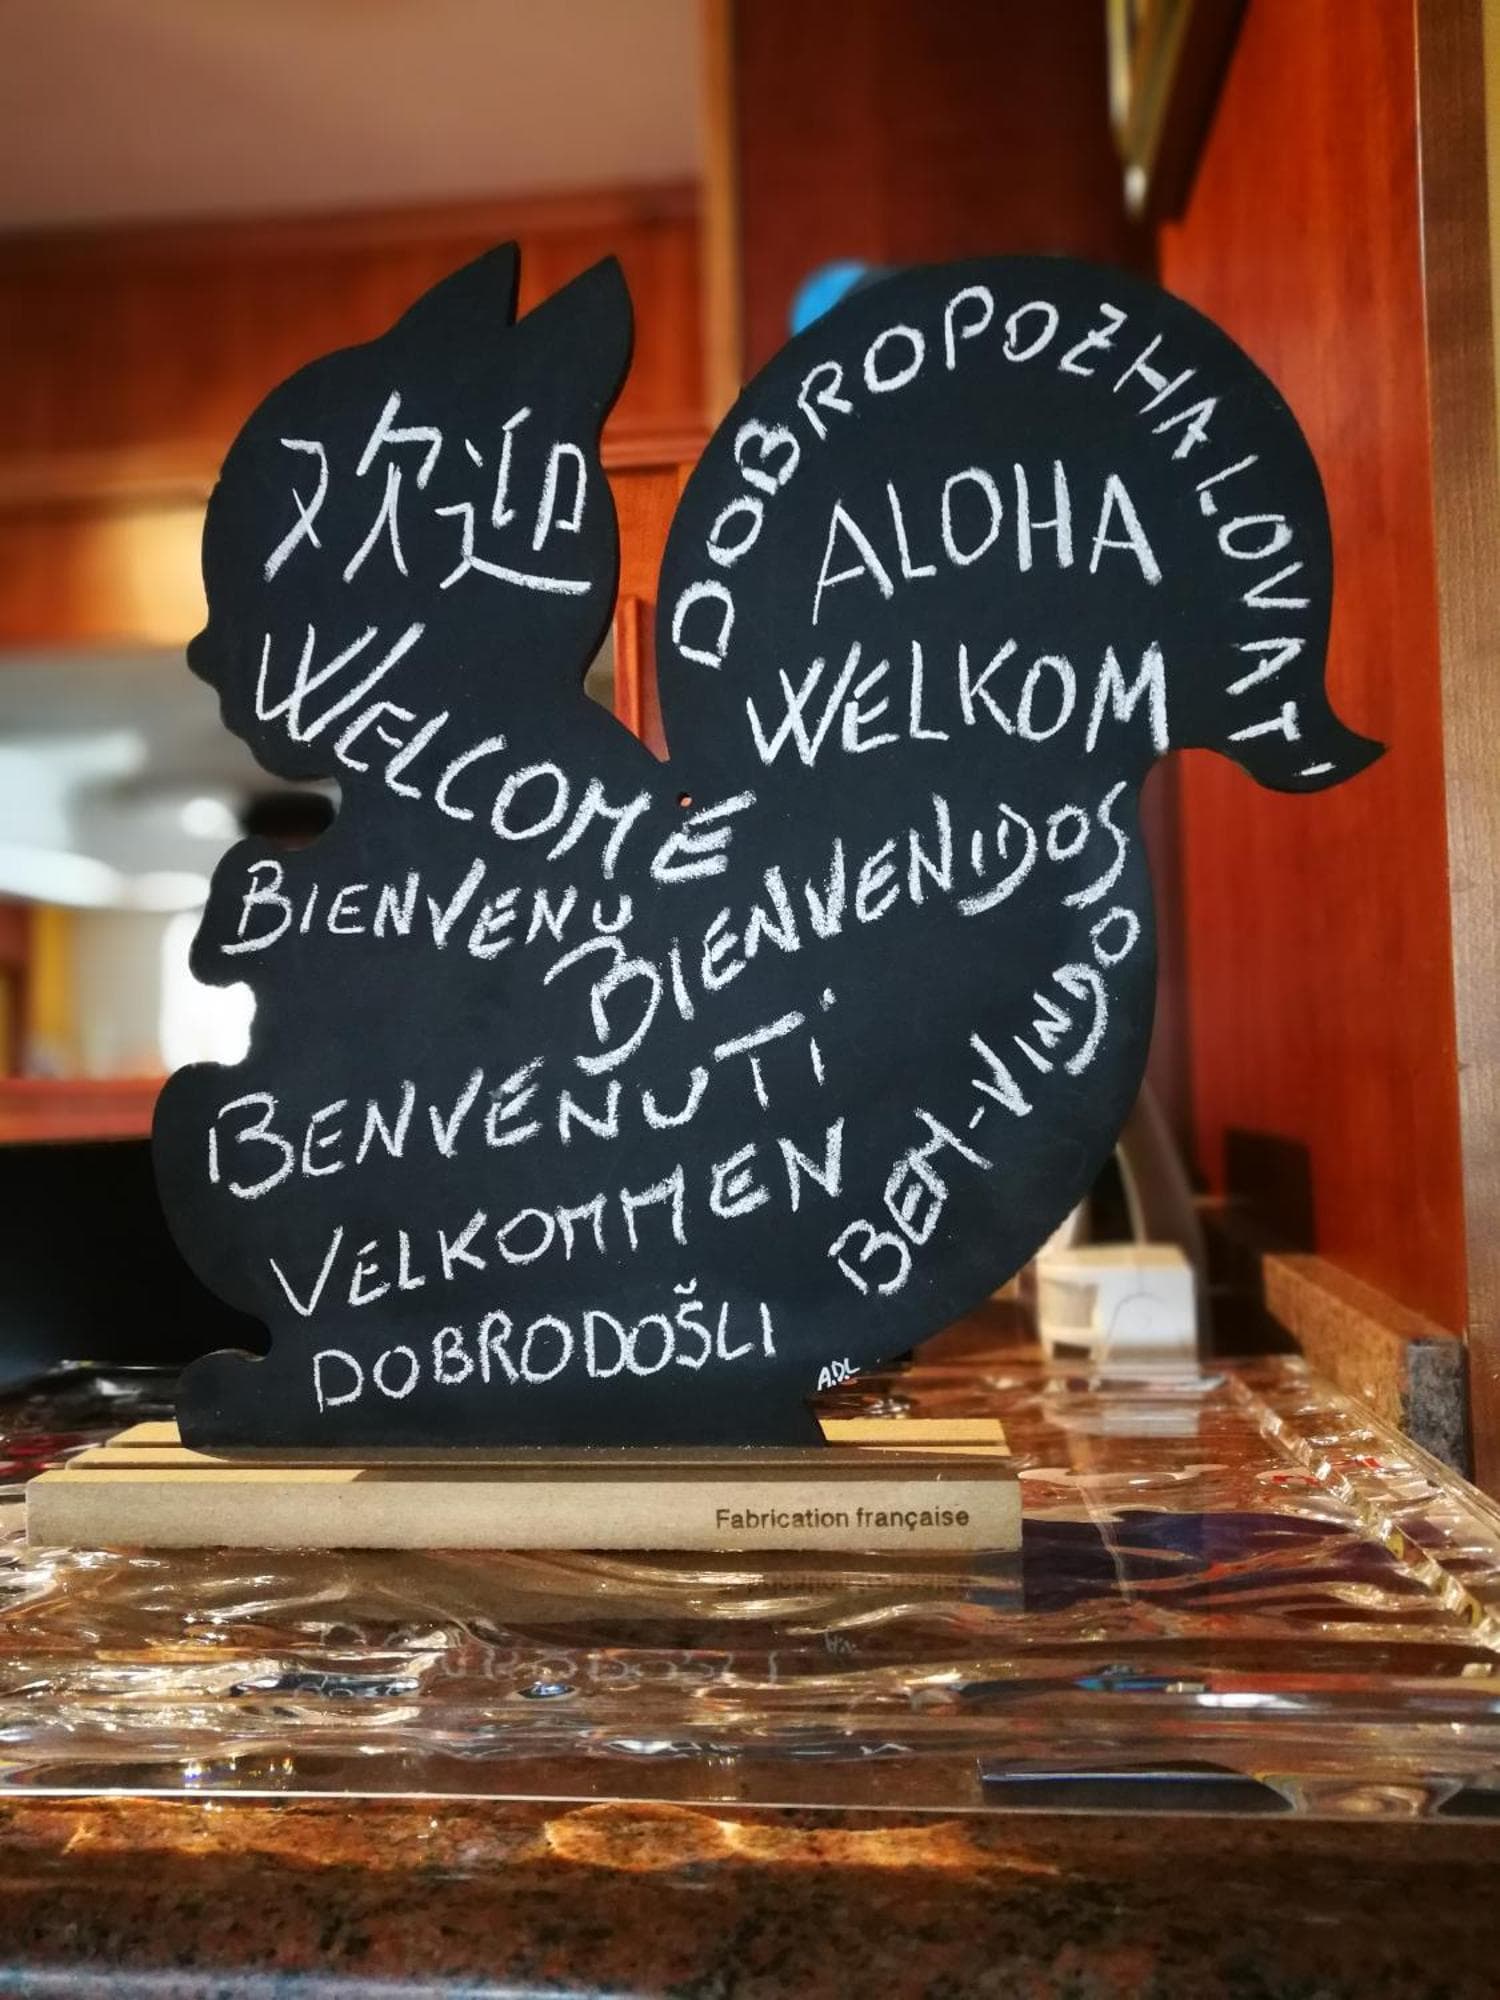 欢迎
WELCOME
BIENVENU
DOBROPOZHALOVAT'
ALOHA
WELKOM
BIENVENIDOS
BENVENUTI
BEM-VINDO
VELKOMMEN
DOBRODOŠLI
A.D.L
Fabrication française